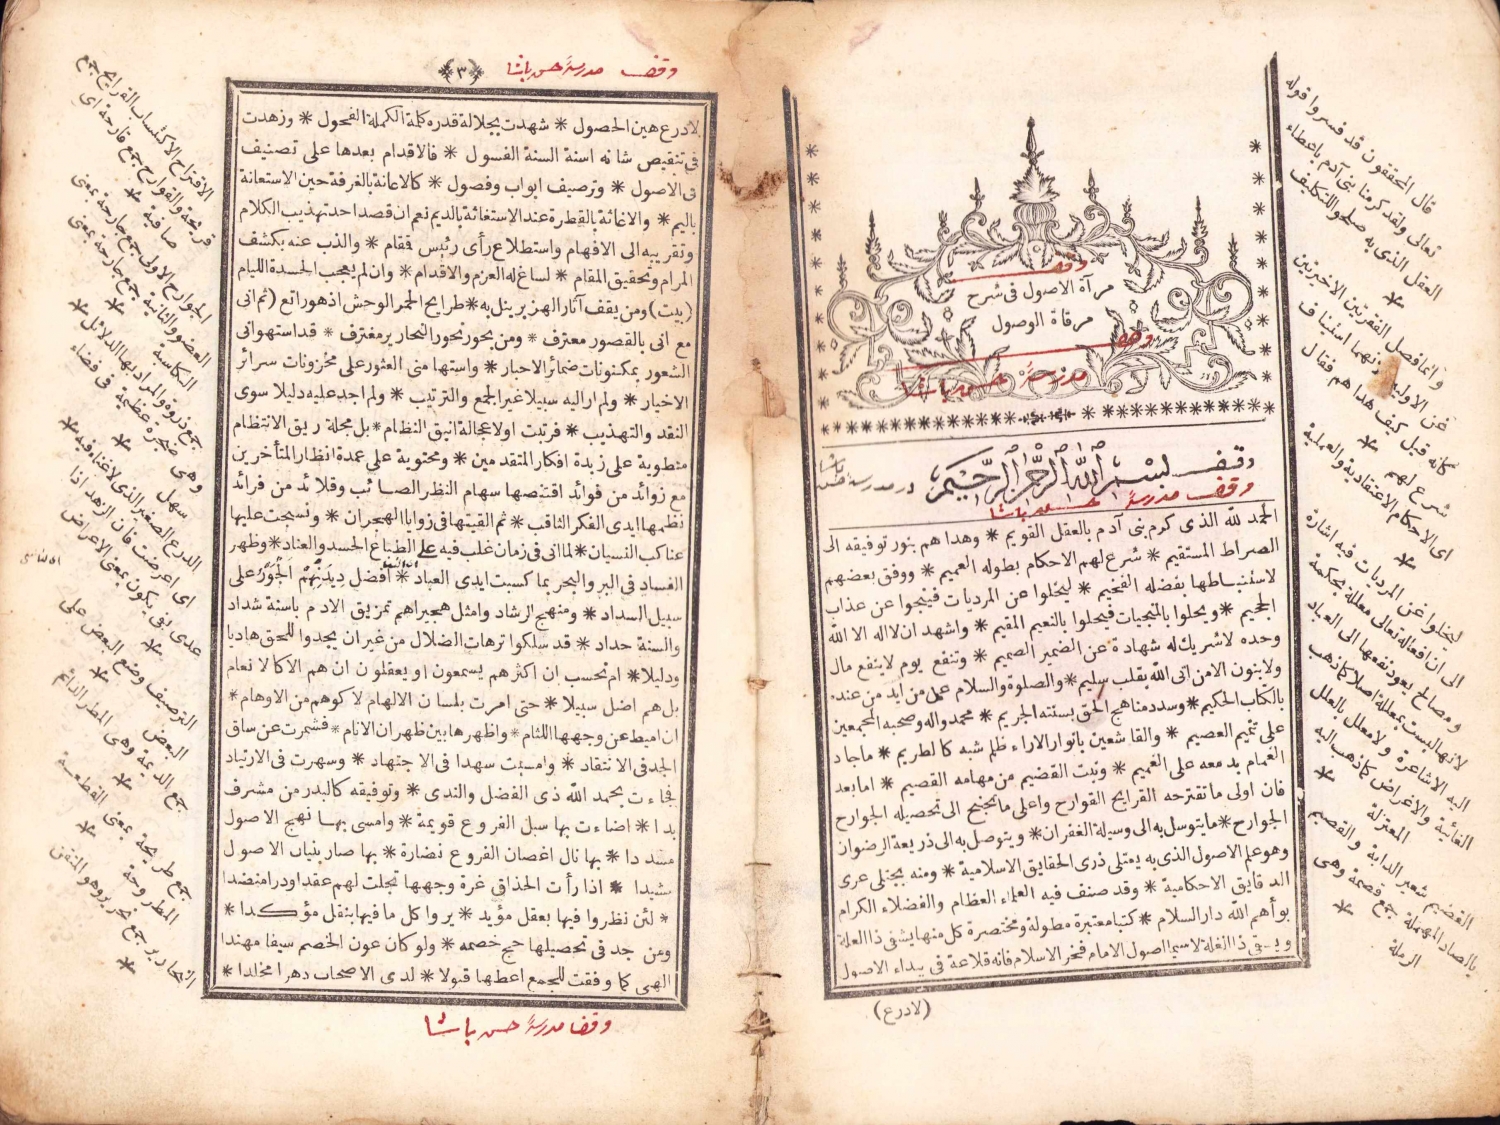 وقف
مرآة الاصول فى شرح
مرقاة الوصول
وقف
مدرسهٔ حسن باشا
وقف بسم الله الرحمن الرحيم در مدرسهٔ حسن باشا
وقف مدرسهٔ حسن باشا
الحمد لله الذى كرم بنى آدم بالعقل القويم * وهدا هم بنور توفيقه الى
الصراط المستقيم * شرع لهم الاحكام بطوله العميم * ووفق بعضهم
لاستنباطها بفضله الفخيم * ليخلوا عن المرديات فينجوا عن عذاب
الجحيم * ويحلوا بالمنجيات فيحلوا بالنعيم المقيم * واشهد ان لا اله الا الله
وحده لا شريك له شهادة عن الضمير الصميم * وتنفع يوم لا ينفع مال
ولا بنون الا من اتى الله بقلب سليم * والصلوة والسلام على من ايد من عنده
بالكتاب الحكيم * وسدد مناهج الحق بسنته الجريم * محمد واله وصحبه المجمعين
على تتميم العصيم * والقاشعين بانوار الاراء ظلم شبه كالطريم * ما جاد
الغمام بدمعه على الغميم * ونبت القضيم من مهامه القصيم * اما بعد
فان اولى ما تقترحه القرايح القوارح واعلى ما تجنح الى تحصيله الجوارح
الجوارح * ما يتوسل به الى وسيلة الغفران * ويتوصل به الى ذريعة الرضوان
وهو علم الاصول الذى به يعتلى ذرى الحقايق الاسلامية * ومنه يجتلى عرى
الدقايق الاحكامية * وقد صنف فيه العلماء العظام والفضلاء الكرام
بوأهم الله دار السلام * كتبا معتبرة مطولة ومختصرة كل منها يشفى ذا العلة
ويسقى ذا الغلة لا سيما اصول الامام فخر الاسلام فانه قلاعة فى بيداء الاصول
(لادرع)
قال المحققون قد فسروا قوله
تعالى ولقد كرمنا بنى آدم باعطاء
العقل الذى به صلحوا للتكليف
*
وانما فصل الفقرتين الاخيرتين
عن الاوليين لانهما استيناف
كانه قيل كيف هداهم فقال
شرع لهم *
اى الاحكام الاعتقادية والعملية
*
ليخلوا عن المرديات فيه اشارة
الى ان افعاله تعالى معللة بحكمة
ومصالح يعود نفعها الى العباد
لانها ليست بمعللة اصلا كما ذهب
اليه الاشاعرة ولا معلل بالعلل
الغائية والاغراض كما ذهب اليه
المعتزلة *
القضيم شعير الدابة والقصيم
بالصاد المهملة جمع قصمة وهى
الرملة *
وقف مدرسهٔ حسن باشا
(٣)
لادرع هين الحصول * شهدت بجلالة قدره كلمة الكملة الفحول * وزهدت
فى تنقيص شانه اسنة السنة الفسول * فالاقدام بعدها على تصنيف
فى الاصول * وترصيف ابواب وفصول * كالاعانة بالغرفة حين الاستعانة
باليم * والاغاثة بالقطرة عند الاستغاثة بالديم نعم ان قصد احد تهذيب الكلام
وتقريبه الى الافهام واستطلاع رأى رئيس قمقام * والذب عنه بكشف
المرام وتحقيق المقام * لساغ له العزم والاقدام * وان لم يعجب الحسدة الليام
(بيت) ومن يقف آثار الهزبر ينل به * طرايح الحمر الوحش اذهو راتع (ثم انى
مع انى بالقصور معترف * ومن بحور نحور النحارير مغترف * قد استهوانى
الشعور بمكنونات ضمائر الاحبار * واستهامنى العثور على مخزونات سرائر
الاخيار * ولم ار اليه سبيلا غير الجمع والترتيب * ولم اجد عليه دليلا سوى
النقد والتهذيب * فرتبت اولا عجالة انيق النظام * بل مجلة ريق الانتظام
منطوية على زبدة افكار المتقدمين * ومحتوية على عمدة انظار المتأخرين
مع زوائد من فوائد اقتنصها سهام النظر الصائب وقلائد من فرائد
نظمها ايدى الفكر الثاقب * ثم القيتها فى زوايا الهجران * ونسجت عليها
عناكب النسيان * لما انى فى زمان غلب فيه على الطباع الحسد والعناد * وظهر
الفساد فى البر والبحر بما كسبت ايدى العباد * افضل ديدنهم الجور على
سبيل السداد * ومنهج الرشاد وامثل هجيراهم تمزيق الادم باسنة شداد
والسنة حداد * قد سلكوا ترهات الضلال من غير ان يجدوا للحق هاديا
ودليلا * ام تحسب ان اكثرهم يسمعون او يعقلون ان هم الا كالانعام
بل هم اضل سبيلا * حتى امرت بلسان الالهام لا كوهم من الاوهام *
ان اميط عن وجهها اللثام * واظهرها بين ظهران الانام * فشمرت عن ساق
الجد فى الانتقاد * وامسيت سهدا فى الاجتهاد * وسهرت فى الارتياد
فجاءت بحمد الله ذى الفضل والندى * وتوفيقه كالبدر من مشرف
بدا * اضاءت بها سبل الفروع قويمة * وامسى بها نهج الاصول
مسددا * بها نال اغصان الفروع نضارة * بها صار بنيان الاصول
مشيدا * اذا رأت الحذاق غرة وجهها تجلت لهم عقدا ودرا منضدا
* لئن نظروا فيها بعقل مؤيد * يروا كل ما فيها بنقل مؤكدا *
ومن جد فى تحصيلها حج خصمه * ولو كان عون الخصم سيفا مهندا
الهى كما وفقت للجمع اعطها قبولا * لدى الاصحاب دهرا مخلدا *
وقف مدرسهٔ حسن باشا
الاقتراح الاكتساب القرايح جمع
قريحة والقوارح جمع قارحة اى
صافية *
الجوارح الاولى جمع جارحة بمعنى
العضو والثانية جمع جارحة بمعنى
الكاسبة *
جمع ذروة والمراد بها الدلائل *
وهى صخرة عظيمة فى فضاء
سهل *
الدرع الصغير الذى لا غناء فيه *
اى اعرضت فان الزهد اذا
عدى بفى يكون بمعنى الاعراض
*
الترصيف وضع البعض على
البعض *
جمع الديمة وهى المطر الدائم
*
جمع طريحة بمعنى القطعة
المطروحة *
النحارير جمع نحرير وهو المتقن
*